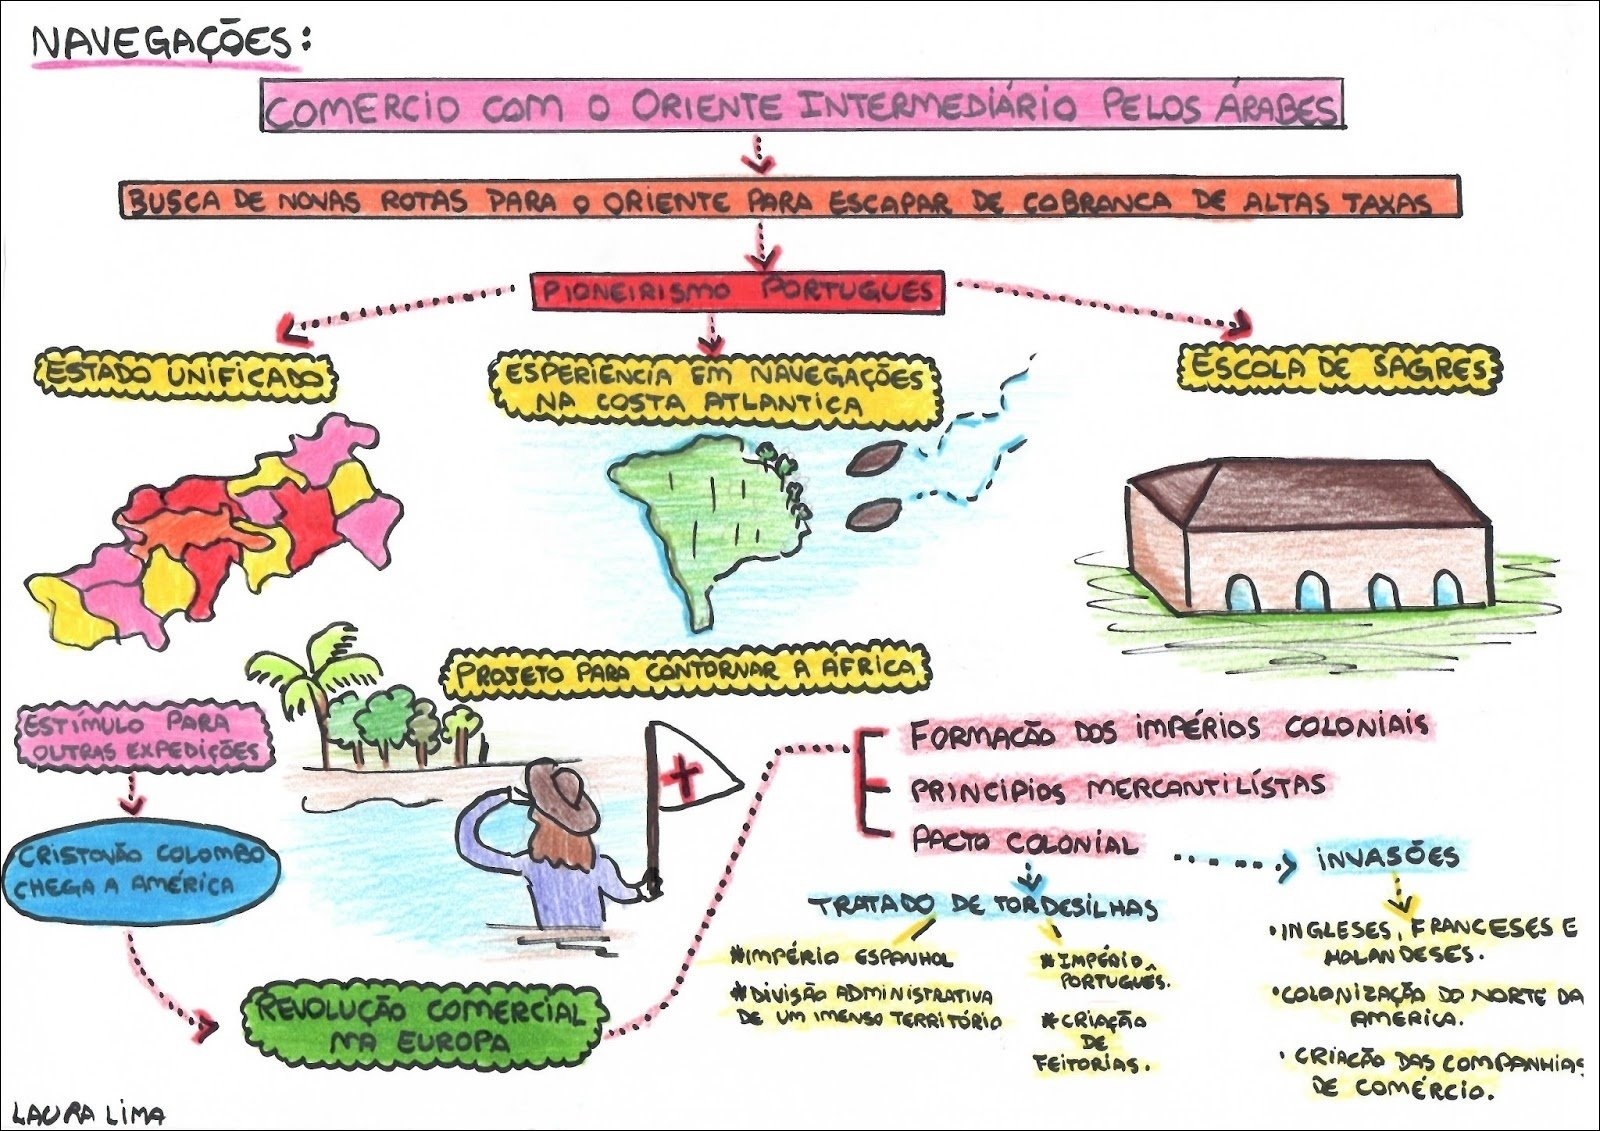 NAVEGAÇÕES:
COMERCIO COM O ORIENTE INTERMEDIÁRIO PELOS ÁRABES
BUSCA DE NOVAS ROTAS PARA O ORIENTE PARA ESCAPAR DE COBRANCA DE ALTAS TAXAS
PIONEIRISMO PORTUGUES
ESTADO UNIFICADO
ESPERIÊNCIA EM NAVEGAÇÕES
NA COSTA ATLANTICA
ESCOLA DE SAGRES
PROJETO PARA CONTORNAR A ÁFRICA
ESTÍMULO PARA
OUTRAS EXPEDIÇÕES
CRISTOVÃO COLOMBO
CHEGA A AMÉRICA
REVOLUÇÃO COMERCIAL
NA EUROPA
FORMAÇÃO DOS IMPÉRIOS COLONIAIS
PRINCIPIOS MERCANTILÍSTAS
PACTO COLONIAL
TRATADO DE TORDESILHAS
#IMPÉRIO ESPANHOL
#DIVISÃO ADMINISTRATIVA
DE UM IMENSO TERRITÓRIO
#IMPÉRIO
PORTUGUÊS.
#CRIAÇÃO
DE
FEITORIAS.
INVASÕES
•INGLESES, FRANCESES E
HOLANDESES.
•COLONIZAÇÃO DO NORTE DA
AMÉRICA.
• CRIAÇÃO DAS COMPANHIAS
DE COMÉRCIO.
LAURA LIMA